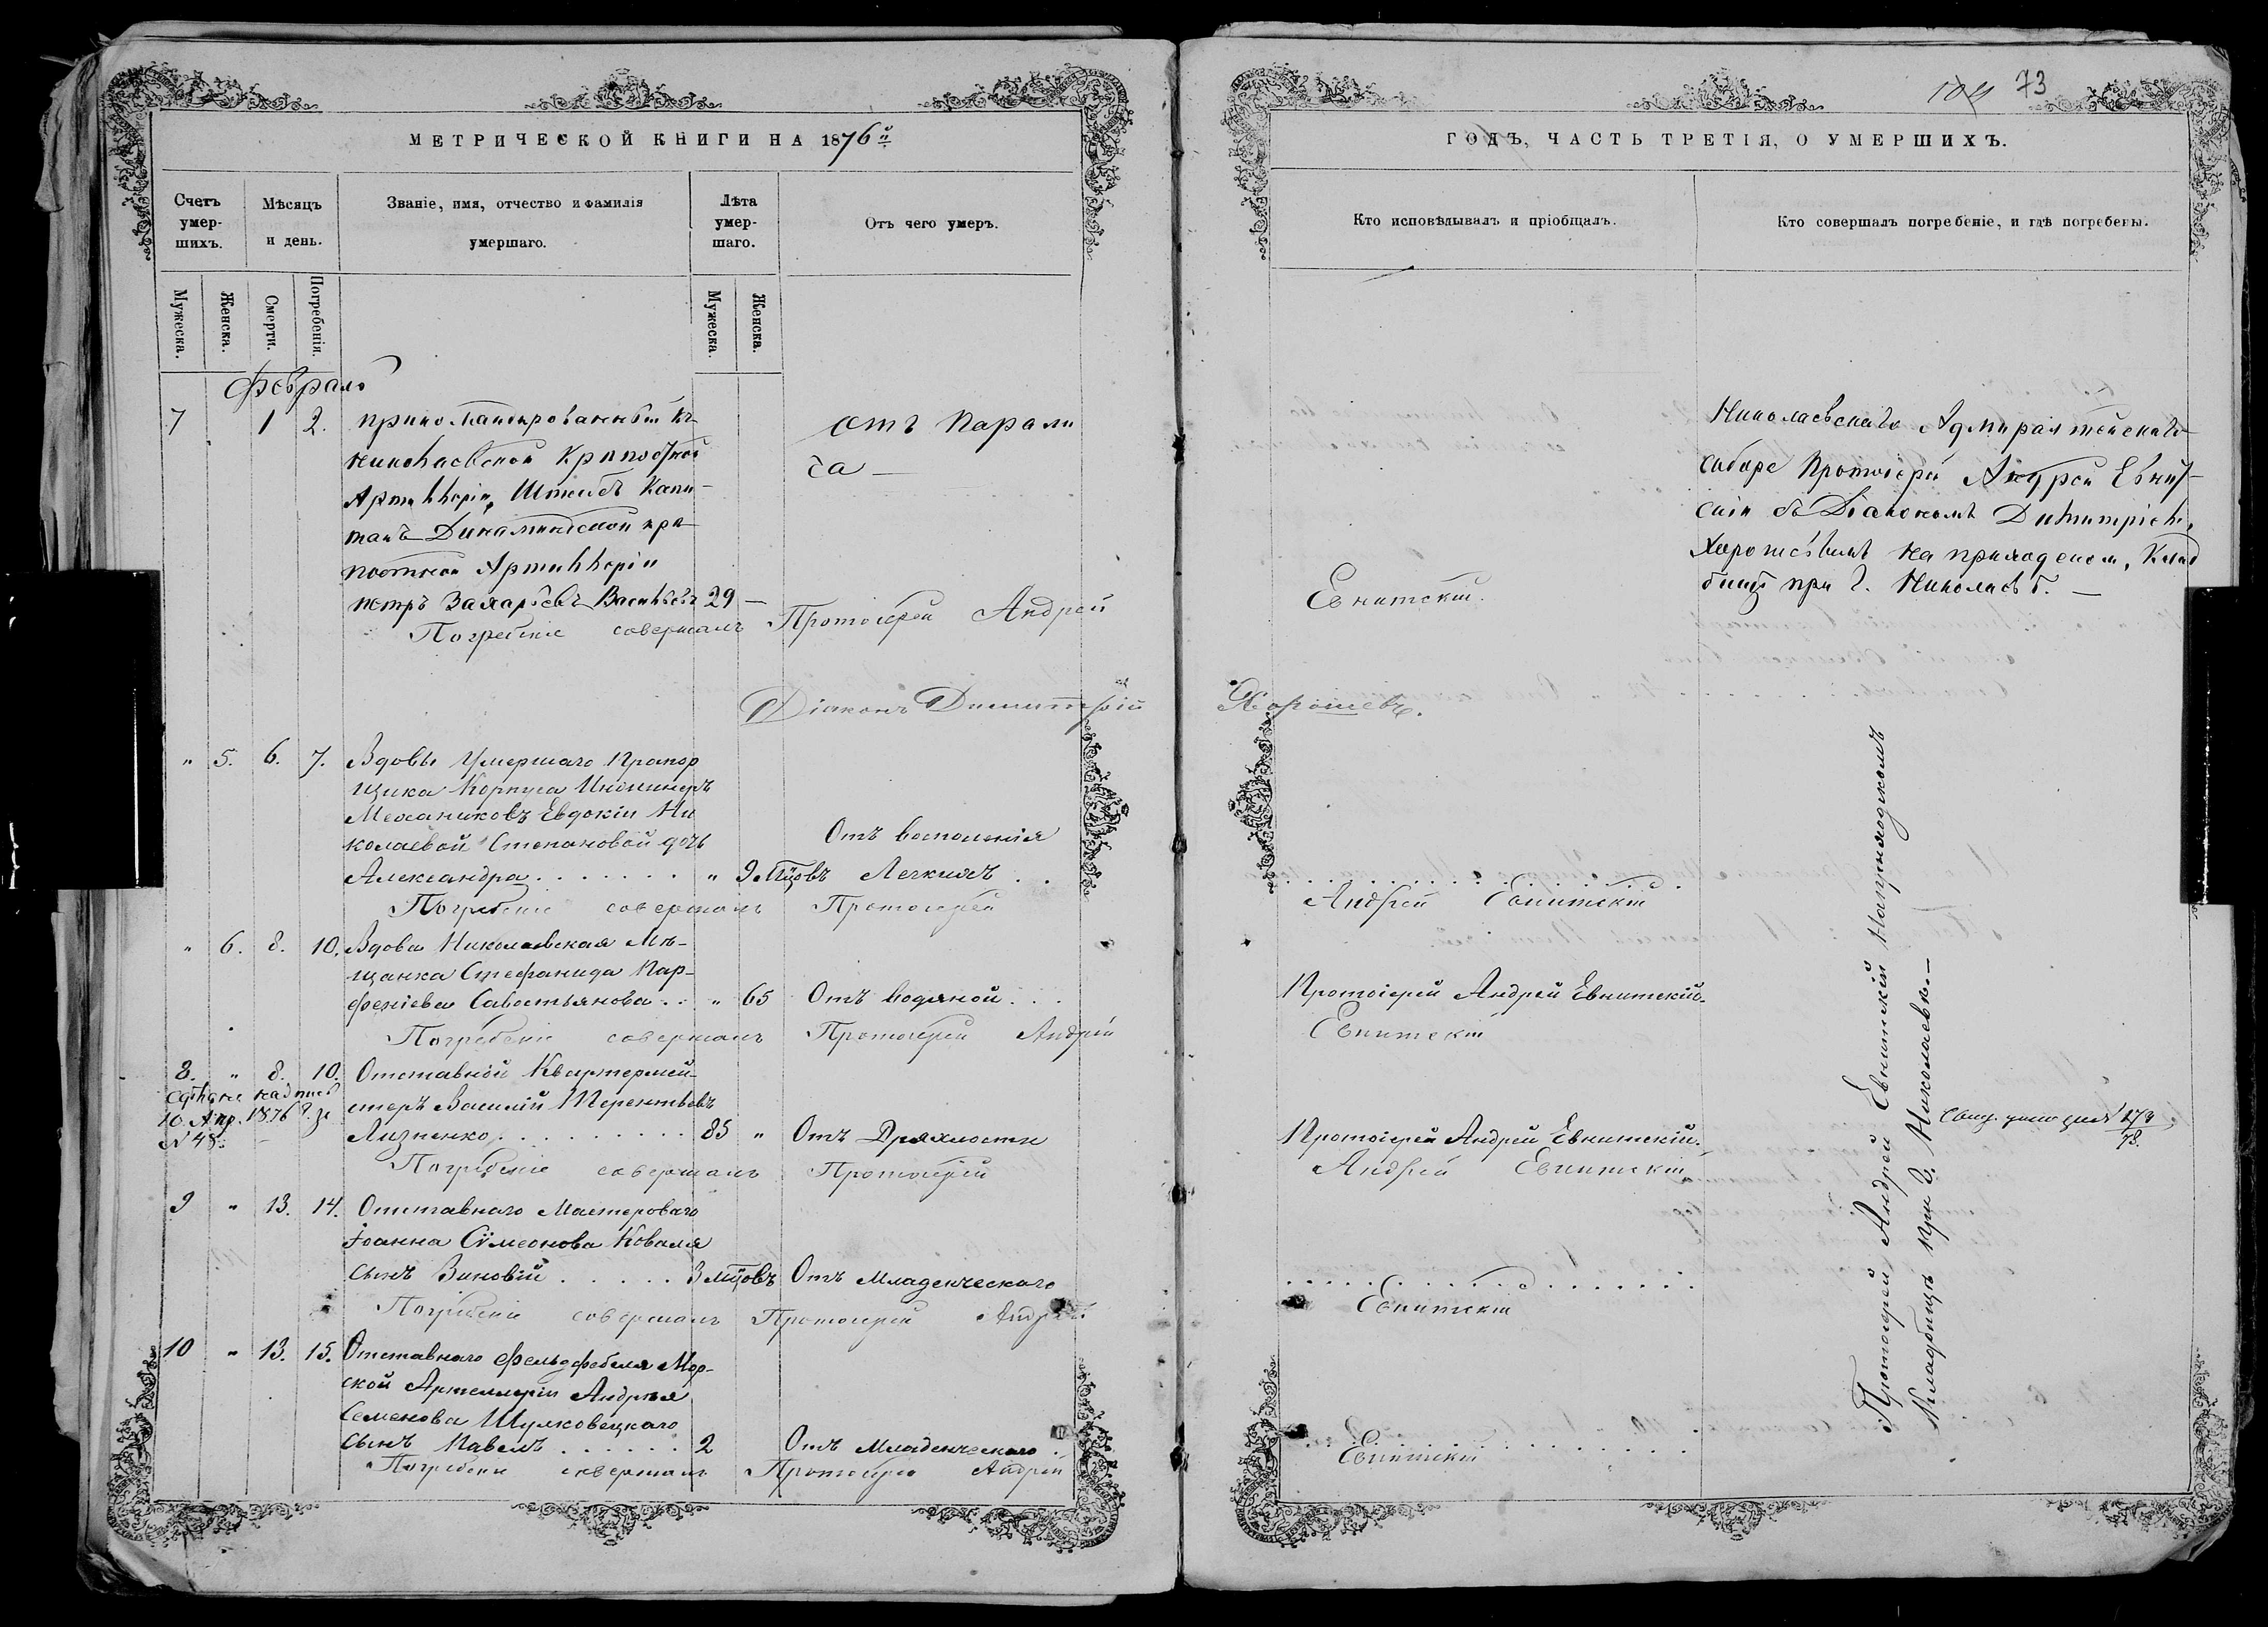 МЕТРИЧЕСКОЙ КНИГИ НА 1876й
Счетъ умер-шихъ.
Мѣсяцъ и день.
Званіе, имя, отчество и фамилія умершаго.
Лѣта умер-шаго.
Отъ чего умеръ.
Мужеска.
Женска.
Смерти.
Погребенія.
Мужеска.
Женска.
Февраль
7 1 2. прикомандированный къ
Николаевской Крѣпостной
Артиллеріи, Штабсъ Капи-
танъ Динаминдской крѣ-
постной Артиллеріи
Петръ Захарьевъ Васильевъ 29 —
отъ Парали
ча —
Погребеніе совершалъ Протоіерей Андрей
Діаконъ Димитрій
" 5. 6. 7. Вдовы Умершаго Прапор
щика Корпуса Инженеръ
Механиковъ Евдокіи Ни
колаевой Степановой дочь
Александра . . . . . . . " 9 мцовъ
Отъ воспаленія
Легкихъ . .
Погребеніе совершалъ Протоіерей
" 6. 8. 10. Вдова Николаевская Мѣ-
щанка Стефанида Пар-
феніева Савостьянова . . " 65 Отъ водяной . . .
Погребеніе совершалъ Протоіерей Андрей
8. " 8. 10. Отставной Квартермей-
стеръ Василій Терентьевъ
Лизненко . . . . . . . . . 85 " Отъ Дряхлости
сдѣлана надпись
10. Апр. 1876 г. за
№ 48. —
Погребеніе совершалъ Протоіерей
9 " 13. 14. Отставнаго Мастероваго
Іоанна Сѵмеонова Коваля
сынъ Зиновій . . . . . 3 мцовъ Отъ Младенческаго
Погребеніе совершалъ Протоіерей Андрей
10 " 13. 15. Отставнаго Фельдфебеля Мор-
ской Артиллеріи Андрея
Семенова Шулковецкаго
сынъ Павелъ . . . . . . 2 Отъ Младенческаго .
Погребеніе совершалъ Протоіерей Андрей
73
ГОДЪ, ЧАСТЬ ТРЕТІЯ, О УМЕРШИХЪ.
Кто исповѣдывалъ и пріобщалъ.
Кто совершалъ погребеніе, и гдѣ погребены.
Николаевскаго Адмиралтейскаго
Собора Протоіерей Андрей Евнит-
скій съ Діакономъ Димитріемъ
Хорошевымъ на приходском. Клад
бищѣ при г. Николаевѣ. —
Евнитскій.
Хорошевъ.
Андрей Евнитскій
Протоіерей Андрей Евнитскій.
Евнитскій
Протоіерей Андрей Евнитскій.
Андрей Евнитскій
Евнитскій
Евнитскій
Протоіерей Андрей Евнитскій на приходскомъ
Кладбищѣ при г. Николаевѣ. —